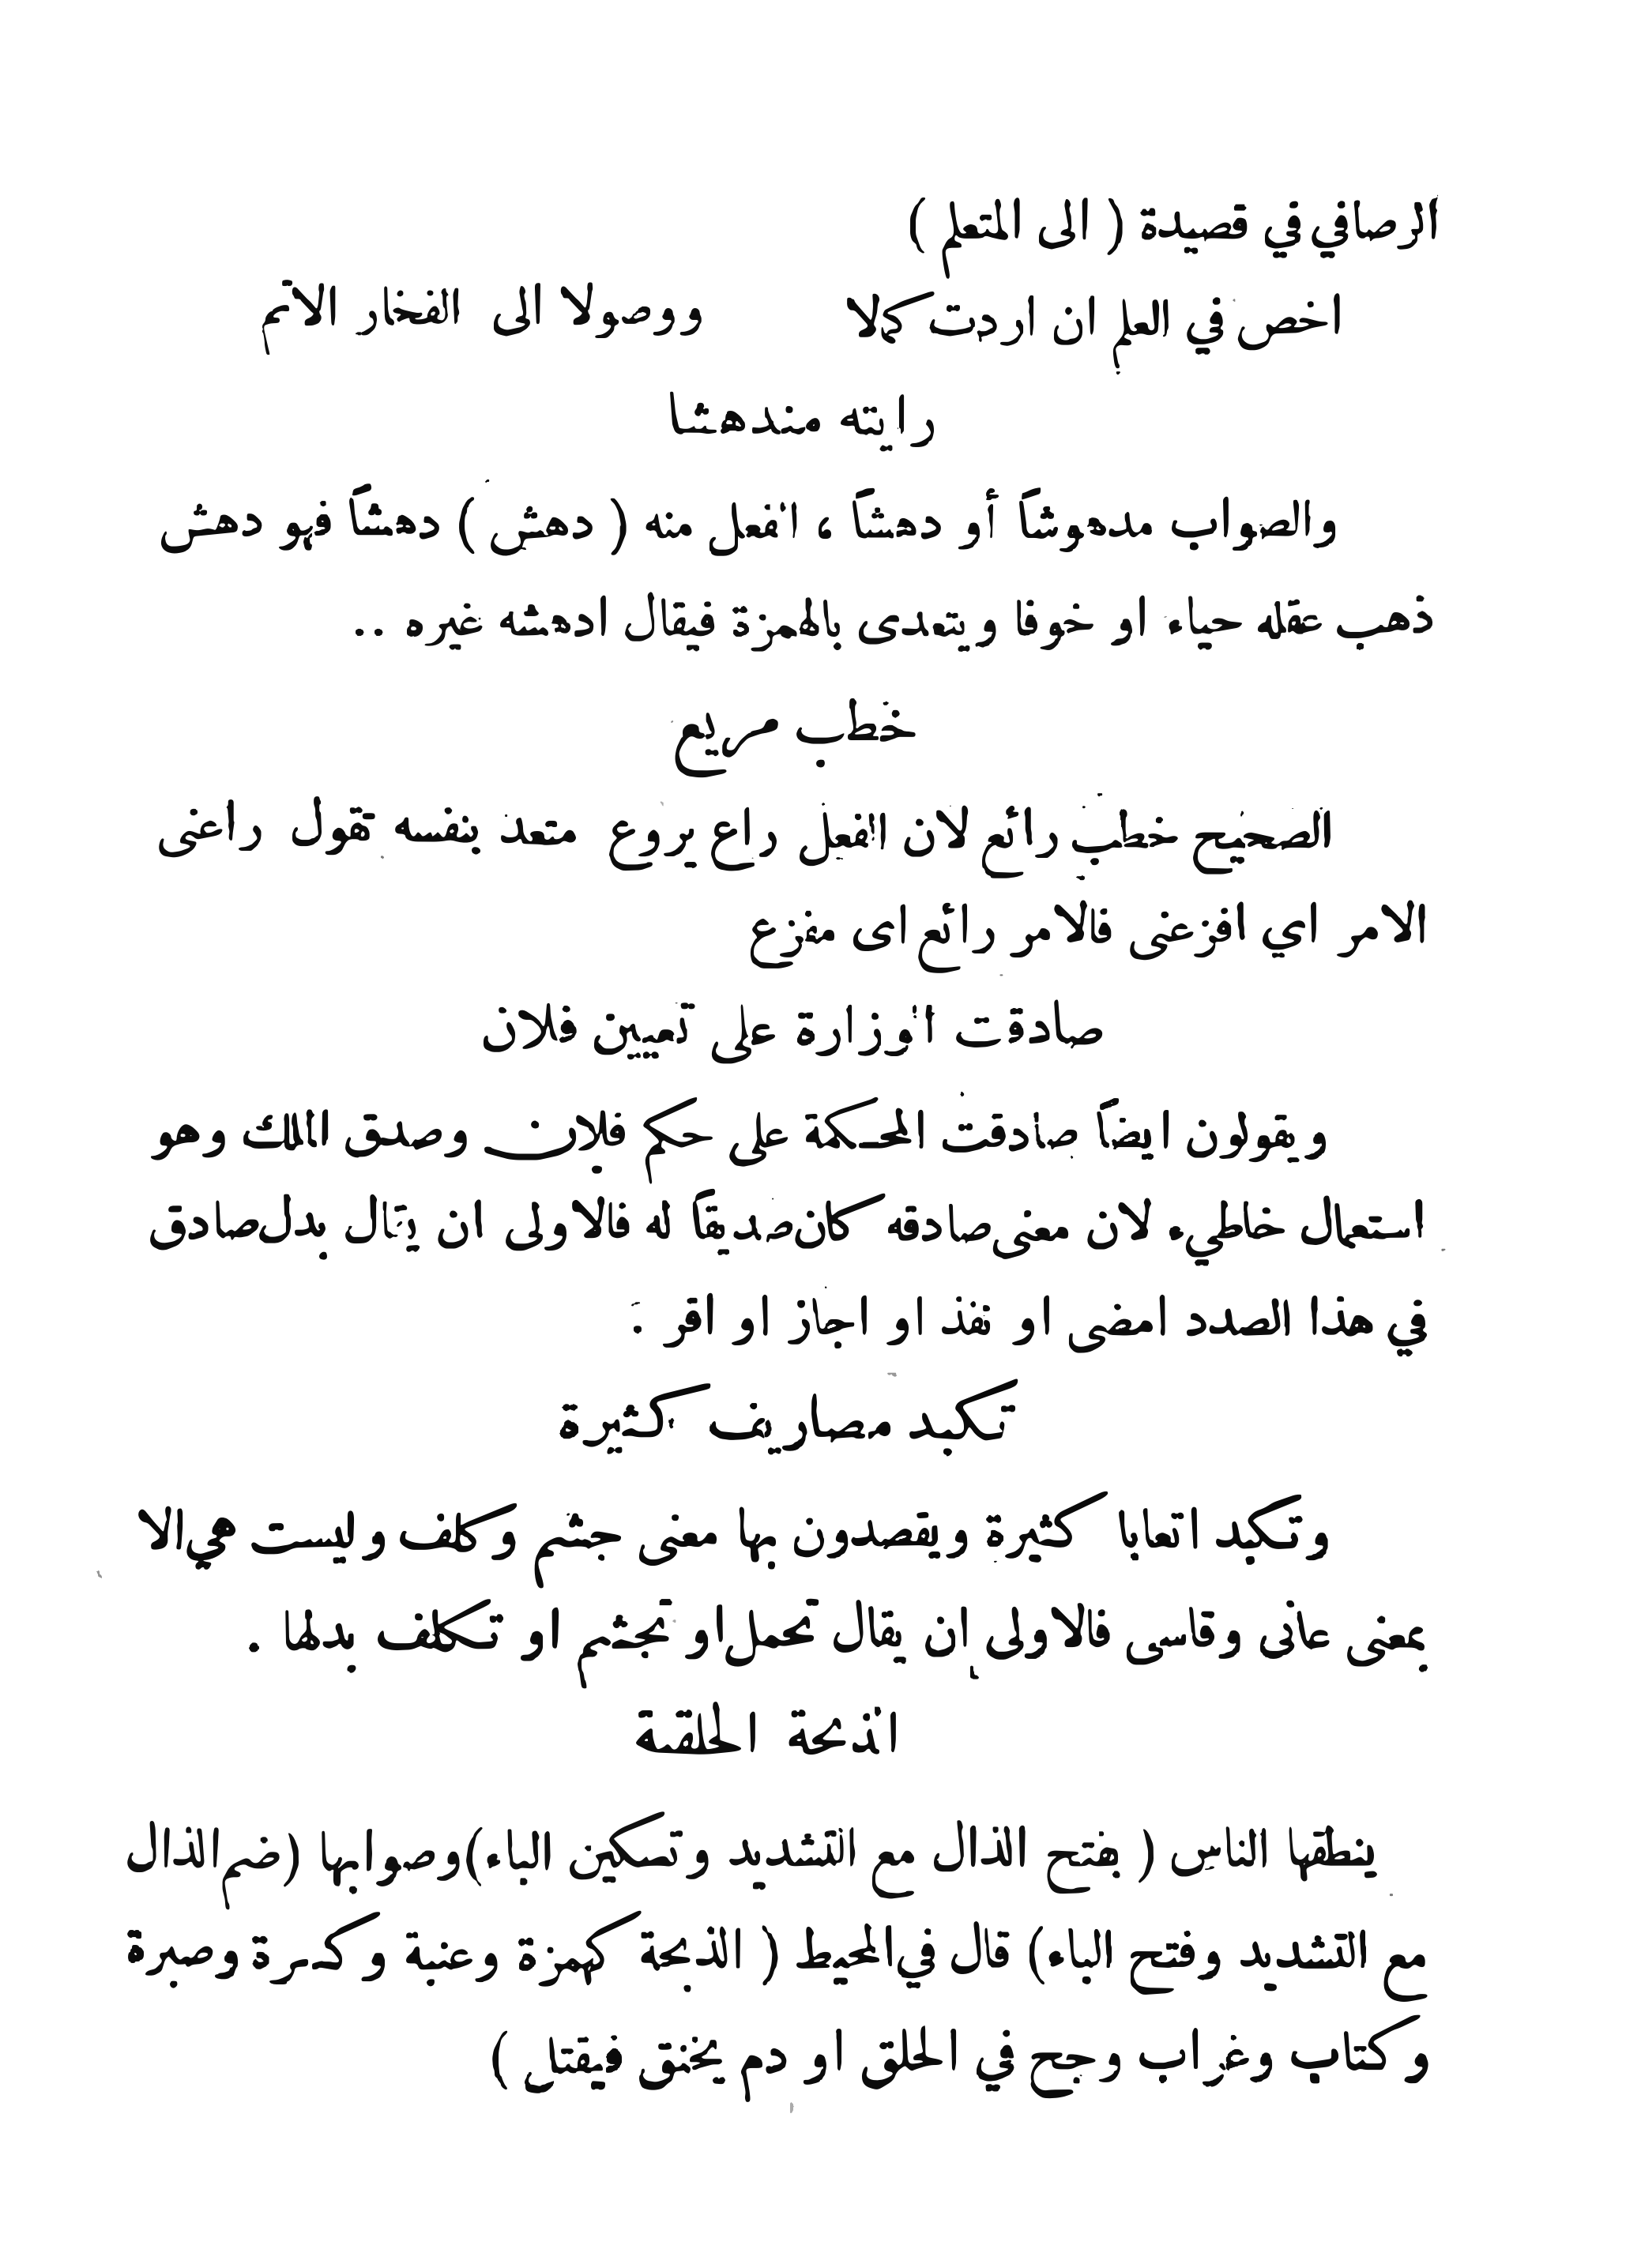 الرصافي في قصيدة ( الى المتعلم )
اخص في العلم ان اردت كمالا ووصولا الى الفخار الاتم
رايته مندهشا
والصواب مدهوشاً أو دهشاً ، الفعل منه ( دهش ) دهشاً فهو دهش
ذهب عقله حياء او خوفا ويتعدى بالهمزة فيقال ادهشه غيره ..
خطب مريع
الصحيح خطب رائع لان الفعل راع يروع متعد بنفسه تقول راعنى
الامر اي افزعنى فالامر رائع اى مفزع
صادقت الوزارة على تعيين فلان
ويقولون ايضاً صادقت المحكمة على حكم فلان وصدق الملك وهو
استعمال خاطيء لان معنى صادقه كان صديقاً له فالاولى ان يقال بدل صادق
في هذا الصدد امضى او نفذ او اجاز او اقر :
تكبد مصاريف كثيرة
وتكبد اتعابا كثيرة ويقصدون بها معنى جشم وكلف وليست هي الا
بمعنى عانى وقاسى فالاولى إن يقال تحمل او تجشم او تكلف بدلها .
الذبحة الحلقية
ينطقها الناس ( بفتح الذال مع التشديد وتسكين الباء) وصوابها (ضم الذال
مع التشديد وفتح الباء) قال في المحيط ( الذبحة كهمزة وعنبة وكسرة وصبرة
وكتاب وغراب وجح في الحلق او دم يخنق فيقتل )